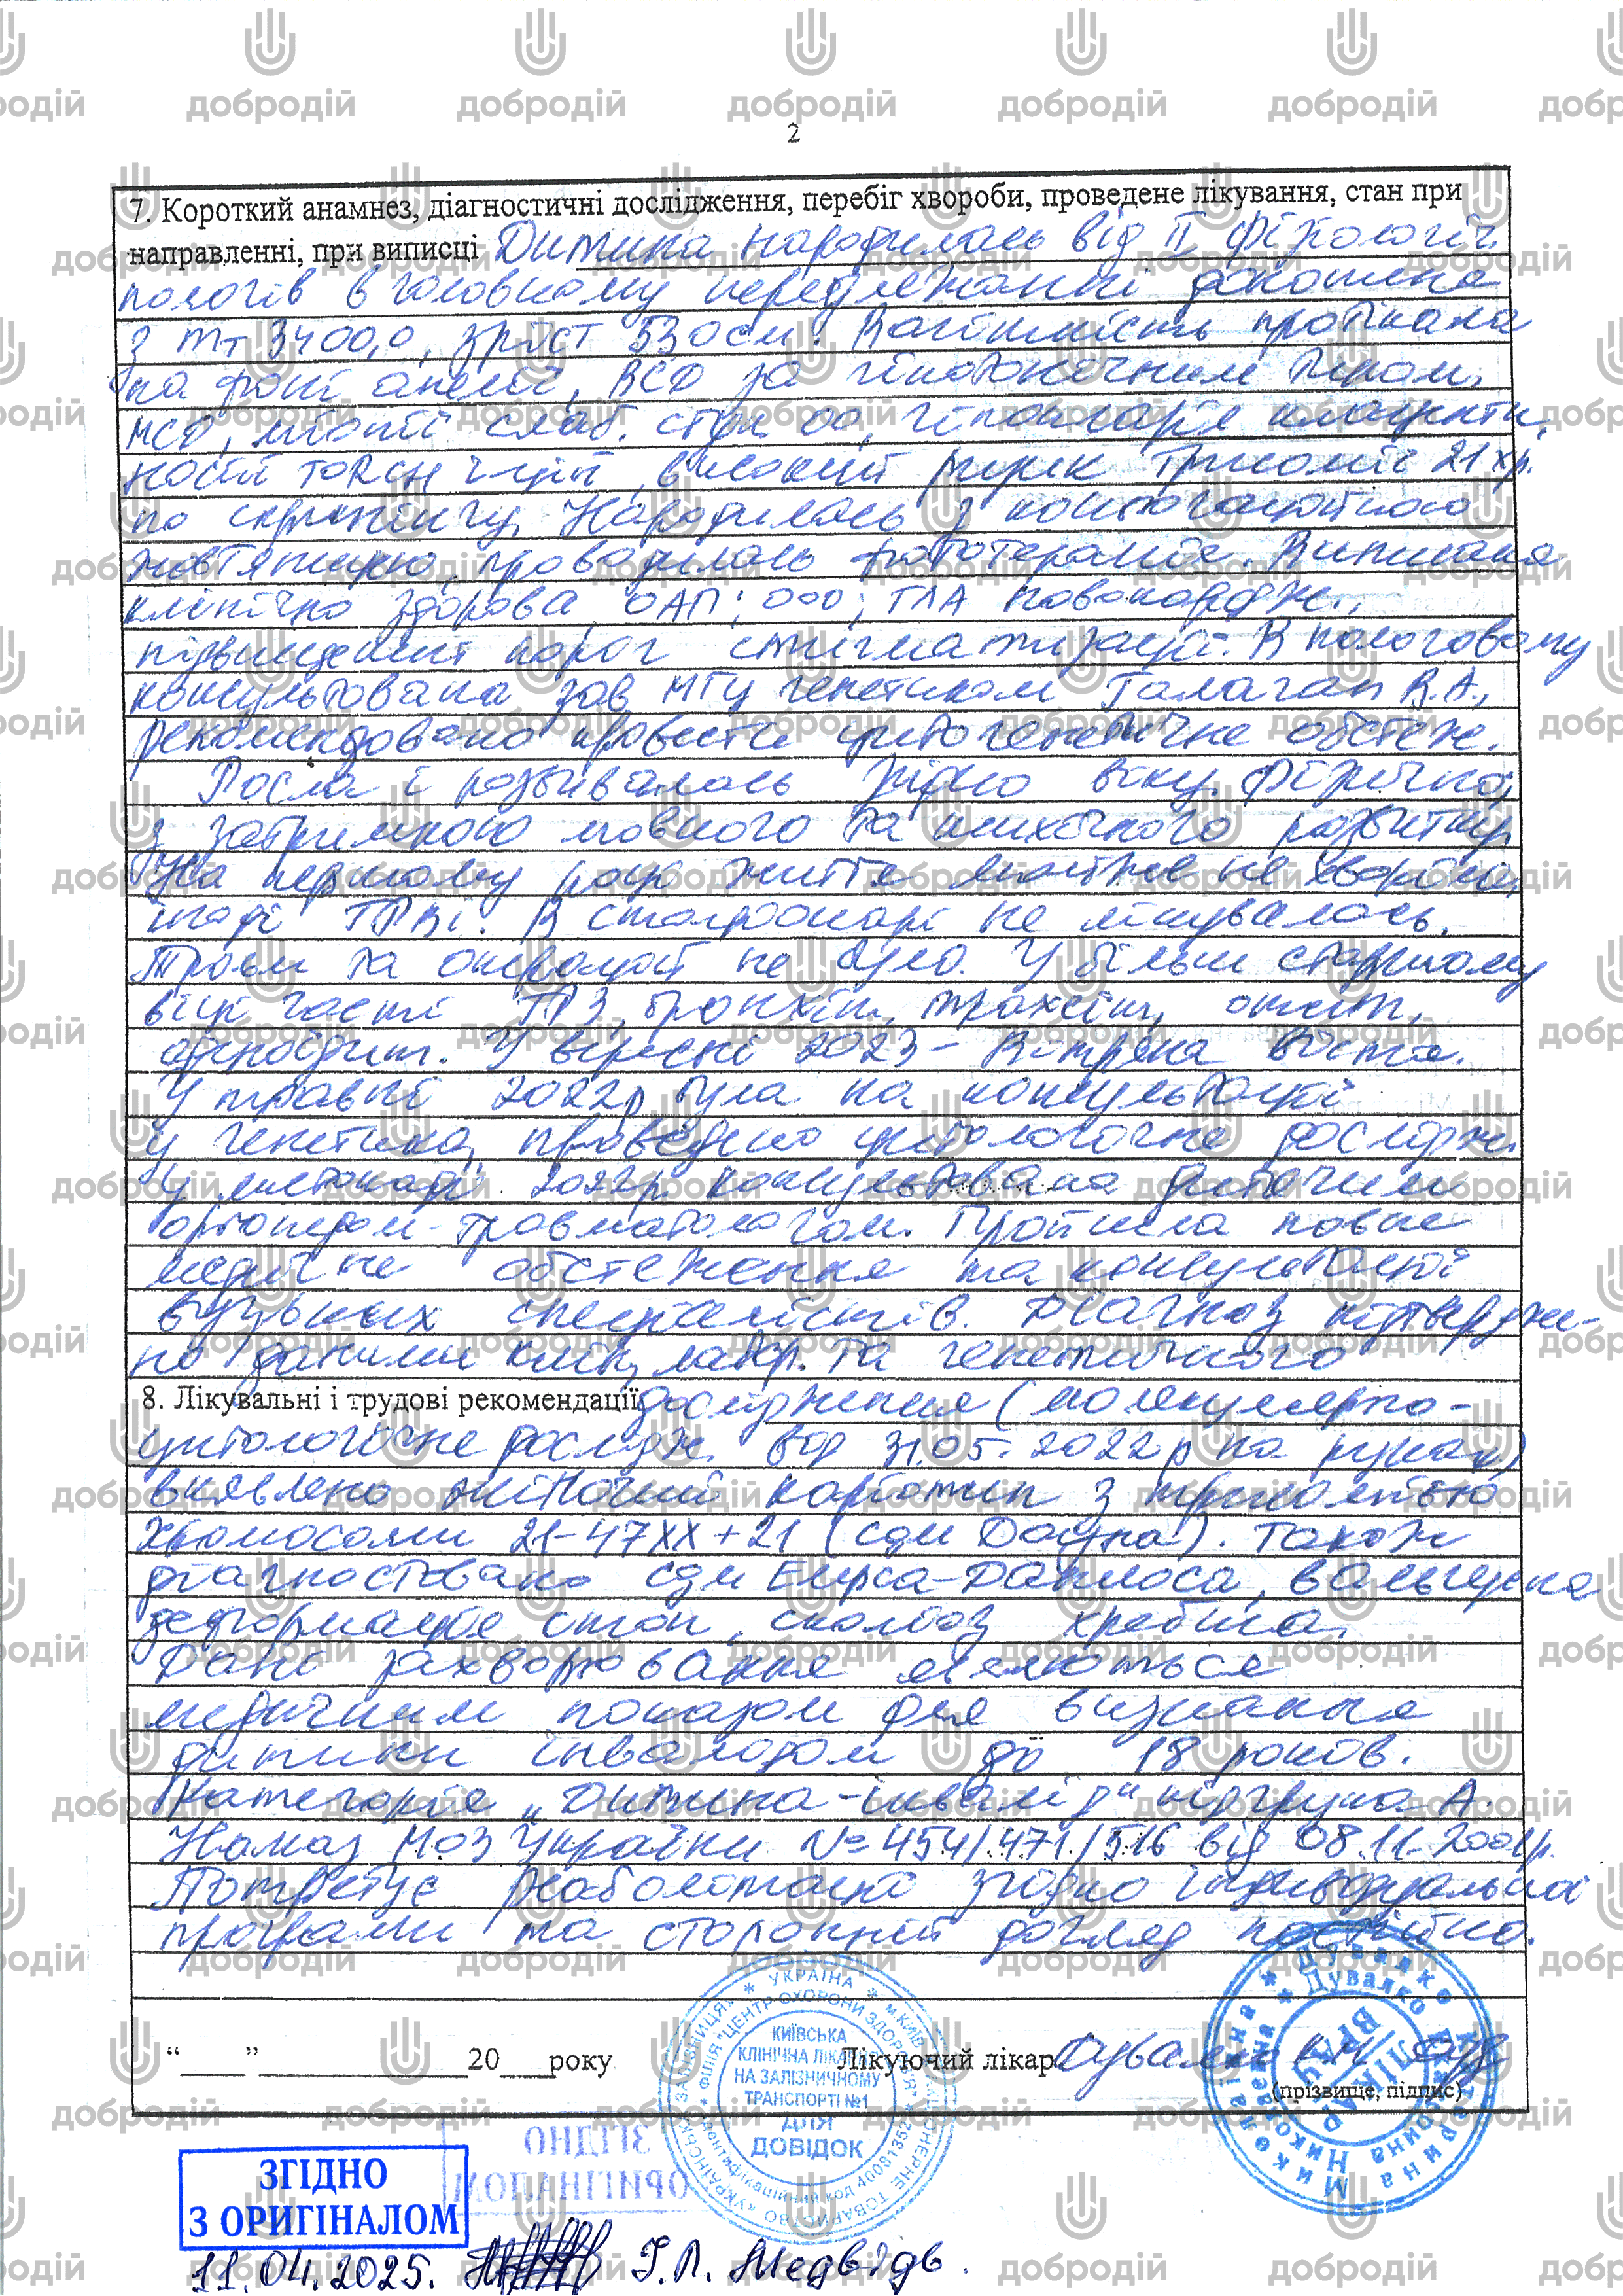 2
7. Короткий анамнез, діагностичні дослідження, перебіг хвороби, проведене лікування, стан при
направленні, при виписці Дитина народилась від II фізіологіч.
пологів в головному передлежанні доношена
з mт 3400,0, зріст 53 см. Вагітність протікала
на фоні анемії, ВСД за гіпотонічним типом,
МСД, міопії слаб. ступ. оо, плаценти,
носій TORCH і-ції, високий ризик Трисомії 21 хр.
по скринінгу. Народилась з кон'югаційною
жовтяницею, проводилась фототерапія. Виписана
клінічно здорова ОАП; ооо; ГЛА новонародж.,
підвищений поріг стигматизації. В пологовому
консультована зав МГЦ генетиком Галаган В.А.,
рекомендовано провести цитогенетичне обстеж.
Росла і розвивалась згідно віку фізично,
з затримкою мовного та психічного розвитку.
На першому році життя не хворіла,
іноді ГРВІ. В стаціонарі не лікувалась.
Травм та операцій не було. У більш старшому
віці часті ГРЗ, бронхіт, трахеїт, отит,
аденоїдит. У вересні 2023 - Вітряна віспа.
У травні 2022р була на консультації
у генетика, проведено цитологічне дослідж.
У листопаді 2022р. консультована дитячим
ортопедом-травматологом. Пройшла повне
медичне обстеження та консультації
вузьких спеціалістів. Діагноз підтвердже-
но даними клін, лабор. та генетичного
8. Лікувальні і трудові рекомендації дослідження (молекулярно-
цитологічне дослідж. від 31.05.2022р на руках)
виявлено жіночий каріотип з трисомією
хромосоми 21-47XX+21 (сдм Дауна). Також
діагностовано сдм Елерса-Данлоса, вальгусна
деформація стоп, сколіоз хребта.
Дані захворювання являються
медичним показом для визнання
дитини інвалідом до 18 років.
Категорія „Дитина-інвалід" підгрупа А.
Наказ МОЗ України №454/471/516 від 08.11.2001р.
Потребує реабілітації згідно індивідуальної
програми та сторонній догляд постійно.
“ ” 20 року Лікуючий лікар Дувалко КМ
(прізвище, підпис)
УКРАЇНА * м.КИЇВ
ФІЛІЯ "ЦЕНТР ОХОРОНИ ЗДОРОВ'Я"
КИЇВСЬКА
КЛІНІЧНА ЛІКАРНЯ
НА ЗАЛІЗНИЧНОМУ
ТРАНСПОРТІ №1
ДЛЯ
ДОВІДОК
Ідентифікаційний код 40081352
Дувалко Катерина Миколаївна
ЛІКАР
ВРАЧ
ЗГІДНО
З ОРИГІНАЛОМ
11.04.2025. І.П. Медвідь.
добродій